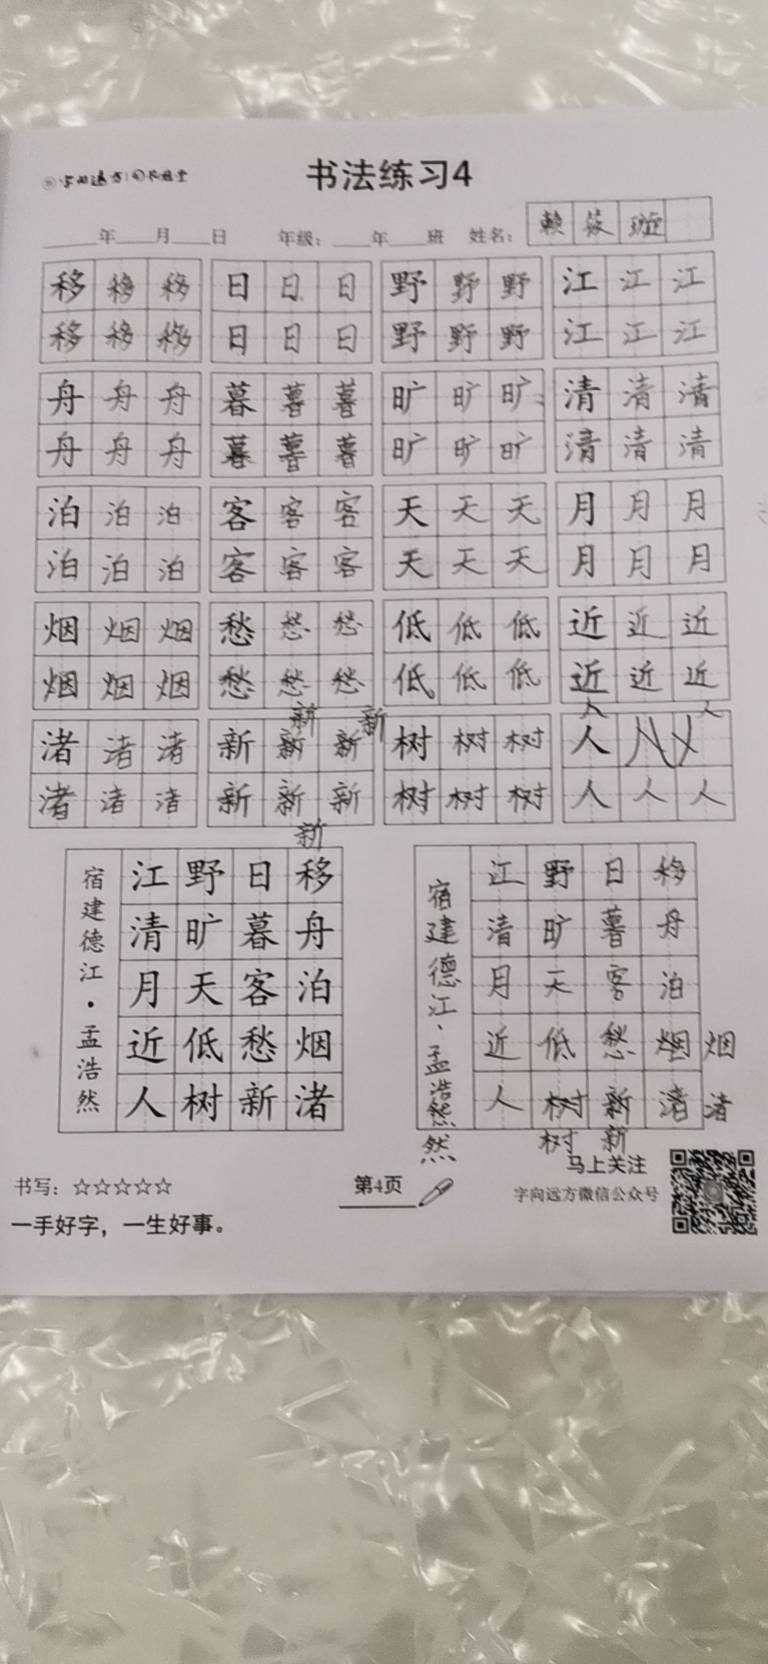 书法练习4
年 月 日 年级: 年 班 姓名: 赖 璇
移 移 移 日 日 日 野 野 野 江 江 江
移 移 移 日 日 日 野 野 野 江 江 江
舟 舟 舟 暮 暮 暮 旷 旷 旷 清 清 清
舟 舟 舟 暮 暮 暮 旷 旷 旷 清 清 清
泊 泊 泊 客 客 客 天 天 天 月 月 月
泊 泊 泊 客 客 客 天 天 天 月 月 月
烟 烟 烟 愁 愁 愁 低 低 低 近 近 近
烟 烟 烟 愁 愁 愁 低 低 低 近 近 近
新 新 人 人
渚 渚 渚 新 新 新 树 树 树 人
渚 渚 渚 新 新 新 树 树 树 人 人 人
新
宿建德江·孟浩然
移舟泊烟渚
日暮客愁新
野旷天低树
江清月近人
宿建德江、孟浩然
然
移舟泊烟渚
烟渚
日暮客愁新
新
野旷天低树
树
江清月近人
书写:☆☆☆☆☆
一手好字，一生好事。
第4页
马上关注
字向远方微信公众号